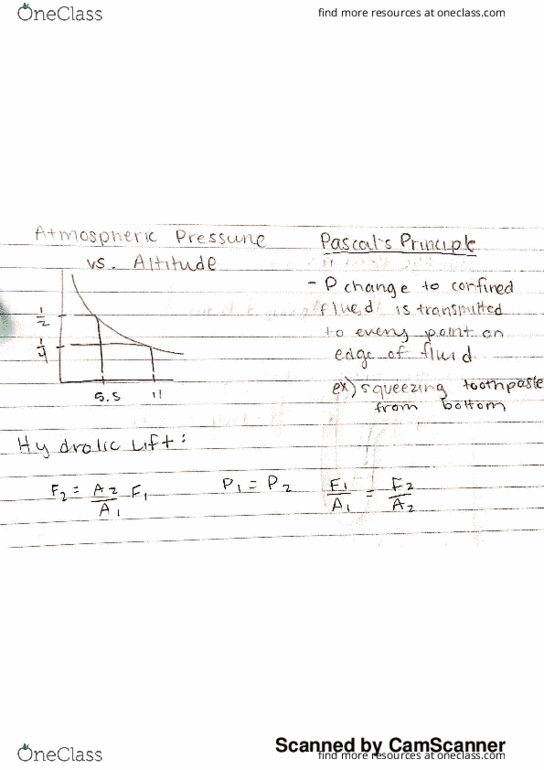 OneClass
find more resources at oneclass.com
Atmospheric Pressure
vs. Altitude
1/2
1/4
5.5 11
Pascal's Principle
- P change to confined
fluid is transmitted
to every point on
edge of fluid
ex) squeezing toothpaste
from bottom
Hydrolic Lift:
F2 = A2/A1 F1
P1 = P2
F1/A1 = F2/A2
Scanned by CamScanner
OneClass
find more resources at oneclass.com